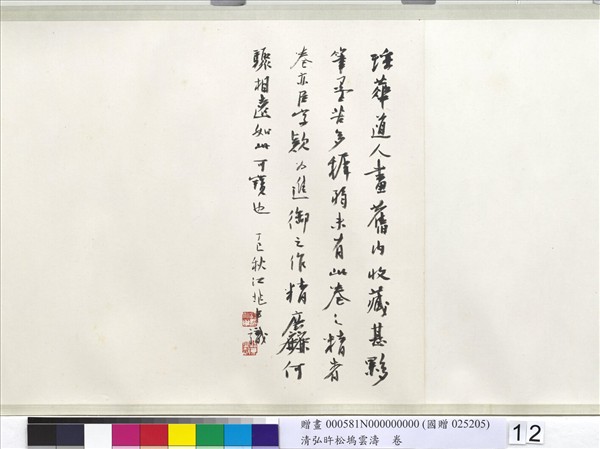 瑤華道人畫舊內收藏甚夥
筆墨苦多孱弱未有此卷之精者
卷亦臣字款為進御之作精麤何
驟相遠如此可寶也 丁巳秋江兆申識
贈畫 000581N000000000 (國贈 025205)
清弘旿松塢雲濤 卷
12